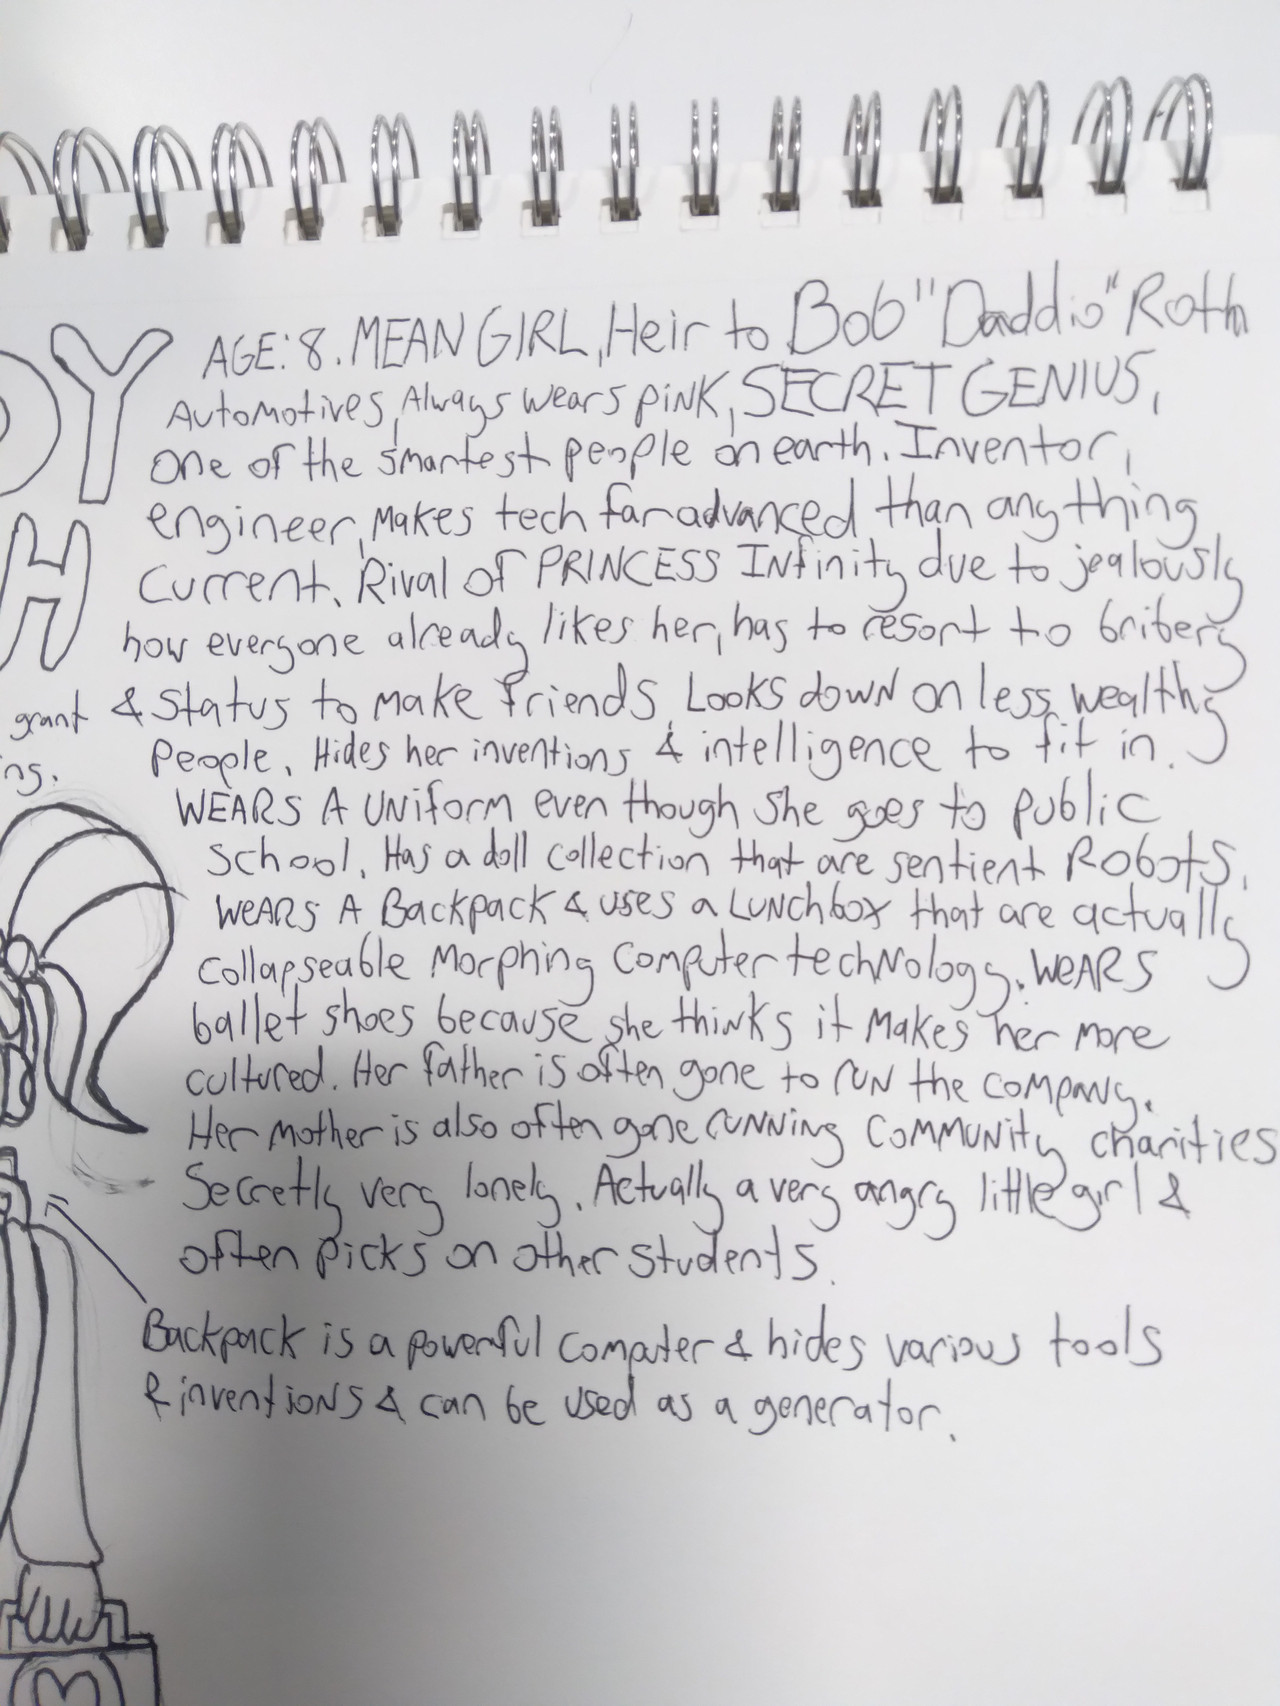 DY
H
AGE: 8. MEAN GIRL, Heir to Bob "Daddio" Roth
Automotives, Always wears pink, SECRET GENIUS,
One of the smartest people on earth. Inventor,
engineer, Makes tech far advanced than anything
Current. Rival of PRINCESS Infinity due to jealously
how everyone already likes her, has to resort to bribery
grant
& Status to make friends. Looks down on less wealthy
People. Hides her inventions & intelligence to fit in.
WEARS A Uniform even though she goes to public
School. Has a doll collection that are sentient Robots.
WEARS A Backpack & uses a Lunchbox that are actually
collapseable Morphing Computer technology. WEARS
ballet shoes because she thinks it makes her more
cultured. Her father is often gone to run the company.
Her mother is also often gone running community charities
Secretly very lonely. Actually a very angry little girl &
often picks on other students.
Backpack is a powerful computer & hides various tools
& inventions & can be used as a generator.